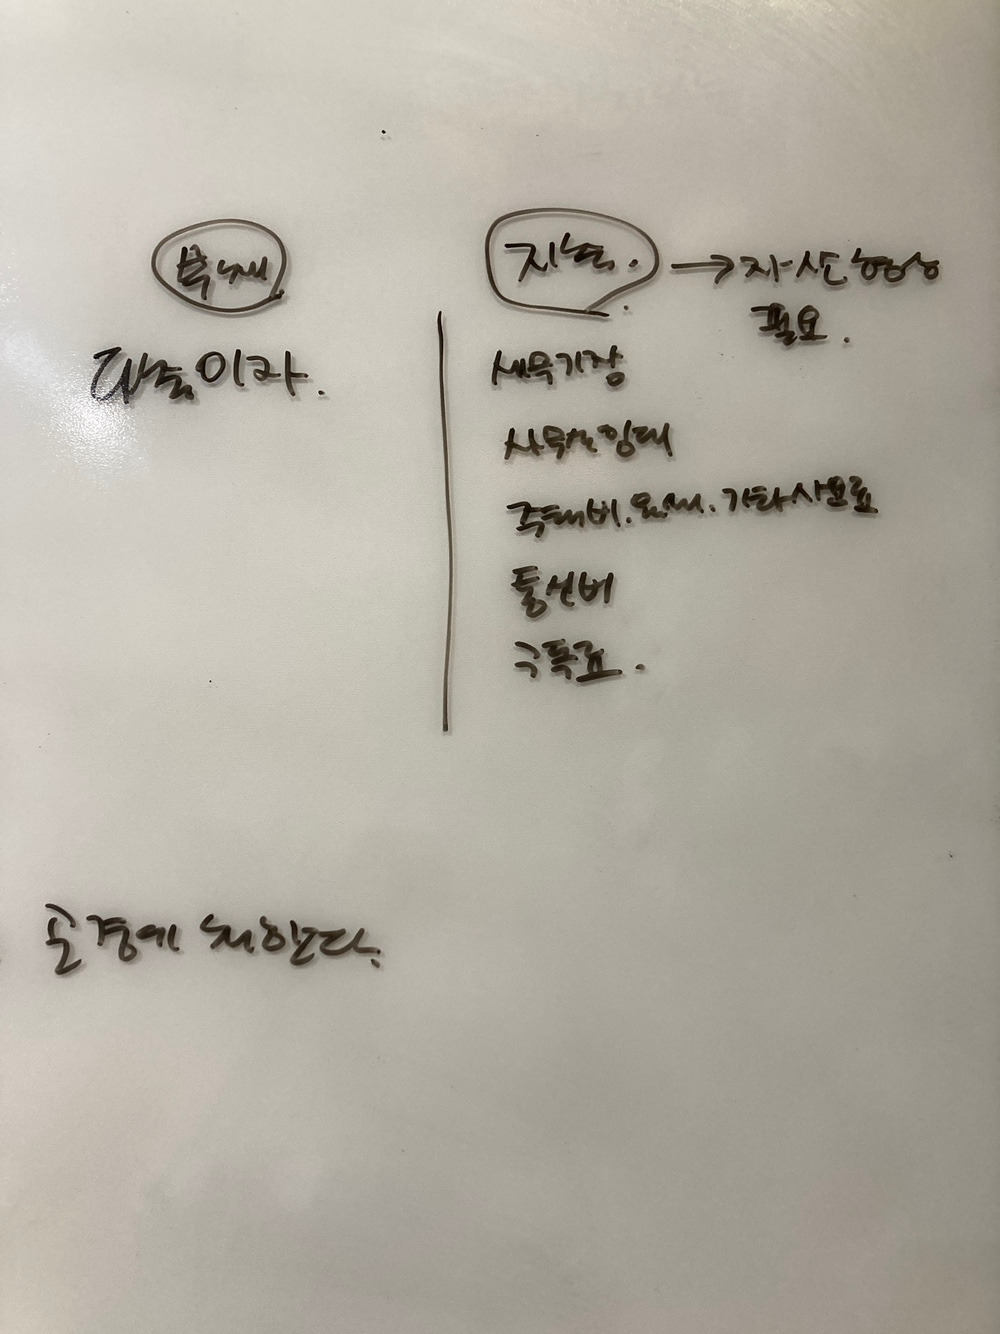 부채
지출. → 자산 형성
필요.
세무기장
사무실임대
주택비. 월세. 기타사용료
통신비
구독료.
곤경에 처한다.